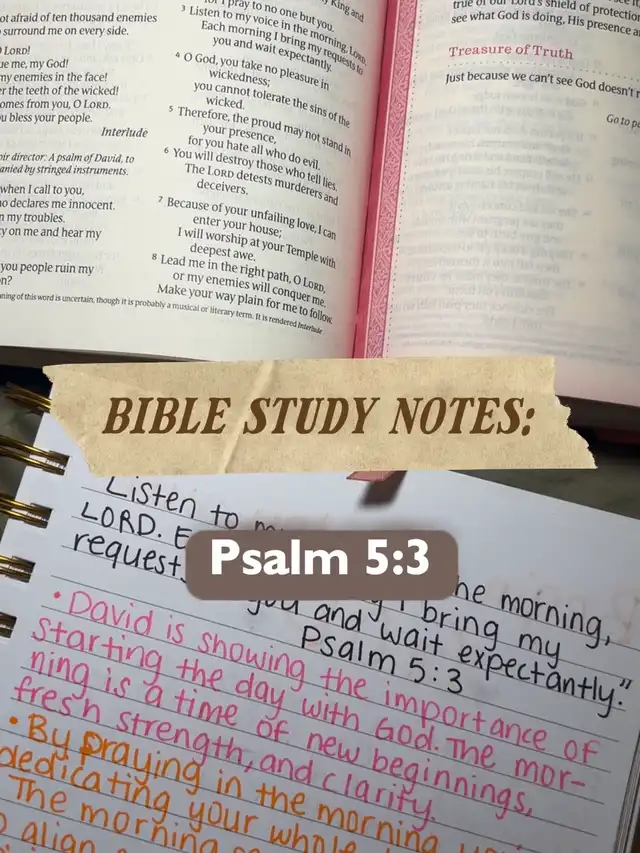 ot afraid of ten thousand enemies
surround me on every side.
LORD!
ue me, my God!
my enemies in the face!
er the teeth of the wicked!
omes from you, O LORD.
u bless your people.
Interlude
oir director: A psalm of David, to
anied by stringed instruments.
when I call to you,
o declares me innocent.
n my troubles.
y on me and hear my
you people ruin my
on?
I pray to no one but you.
King and
3 Listen to my voice in the morning, LORD.
Each morning I bring my requests to
you and wait expectantly.
4 O God, you take no pleasure in
wickedness;
you cannot tolerate the sins of the
wicked.
5 Therefore, the proud may not stand in
your presence,
for you hate all who do evil.
6 You will destroy those who tell lies.
The LORD detests murderers and
deceivers.
7 Because of your unfailing love, I can
enter your house;
I will worship at your Temple with
deepest awe.
8 Lead me in the right path, O LORD,
or my enemies will conquer me.
Make your way plain for me to follow.
ning of this word is uncertain, though it is probably a musical or literary term. It is rendered Interlude
true of our Lord's shield of protection
see what God is doing, His presence a
Treasure of Truth
Just because we can't see God doesn't
Go to
BIBLE STUDY NOTES:
Psalm 5:3
Listen to
he morning,
LORD. E
I bring my
request
you and wait expectantly."
Psalm 5:3
• David is showing the importance of
starting the day with God. The mor-
ning is a time of new beginnings,
fresh strength, and clarity.
• By praying in the morning
dedicating your whole
The morning
align